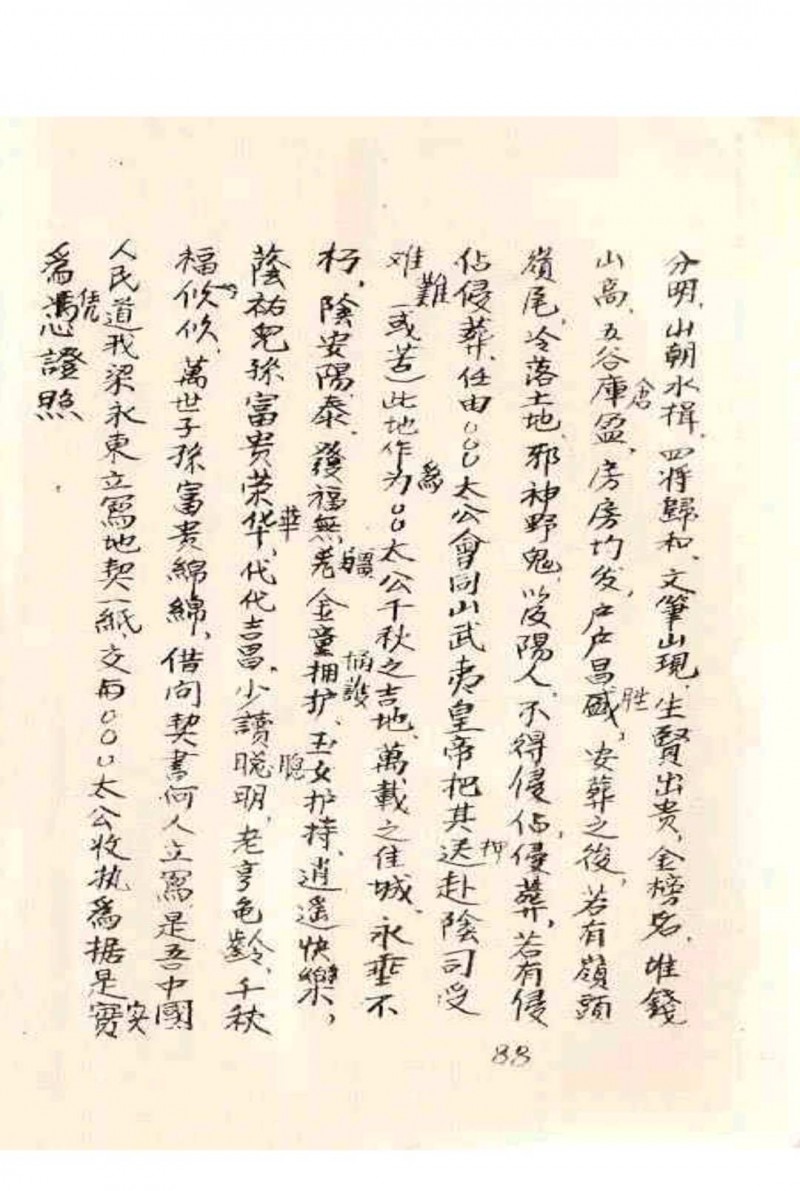 分明、山朝水楫、四将歸和、文筆山現、生賢出贵、金榜名、堆錢
山高、五谷庫盈、房房均发、户户昌盛、安葬之後、若有嶺頭
倉
胜
嶺尾、冷落土地、邪神野鬼、以後陽人、不得侵佔、侵葬、若有侵
佔侵葬、任由○○○太公會同山武夷皇帝把其送赴陰司受
押
难（或苦）此地作为○○太公千秋之吉地、萬載之佳城、永垂不
難
爲
朽，陰安陽泰、發福無老、金童拥护、玉女护持、逍遥快樂，
疆
擁護
蔭祐兒孫富贵荣华、代代吉昌、少讀聪明、老亨龟齡、千秋
華
聰
福攸攸、萬世子孫富貴綿綿，借问契書何人立寫是吾中國
人民道我梁永東立寫地契一紙、交與○○○太公收执爲据是實
安
爲凴證照
凭
88